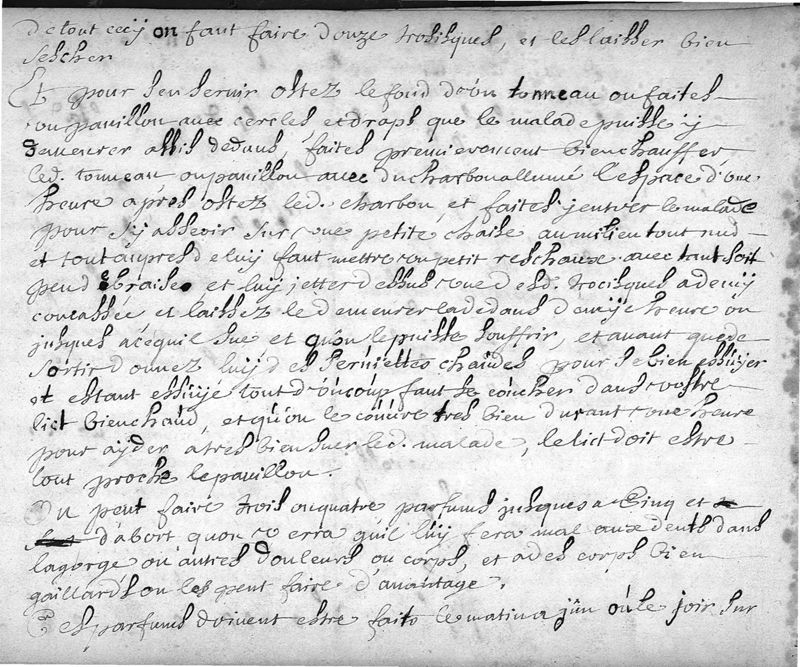 de tout cecy on faut faire douze trosisques, et les laisser bien
sescher
Et pour sen servir ostez le fond d'un tonneau ou faites
un pavillon avec cercles et draps que le malade puisse y
demeurer assis dedans, faites premierement bien chauffer
led. tonneau ou pavillon avec du charbon allumé l'espace d'une
heure apres ostez led. charbon et faites y entrer le malade
pour sy asseoir sur une petite chaise au milieu tout nud
et tout aupres de luy faut mettre un petit reschaux avec tant soit
peu de braise et luy jetter dessus une desd. trocisques a demy
concassée et laissez le demeurer la dedans demye heure ou
jusques a ce quil sue et qu'on le puisse souffrir, et avant que de
sortir donnez luy des serviettes chaudes pour se bien essuyer
et estant essuyé tout d'un coup faut se coucher dans vostre
lict bien chaud, et qu'on le couure tres bien durant une heure
pour ayder a tres bien suer led. malade, le lict doit estre
tout proche le pavillon.
On peut faire trois ou quatre parfums jusques a cinq et
d'abort quon verra qu'il luy fera mal aux dents dans
la gorge ou autres douleurs ou corps, et a des corps bien
gaillards on les peut faire d'avantage.
Ces parfums doivent estre faits le matin a jûn où le soir sur